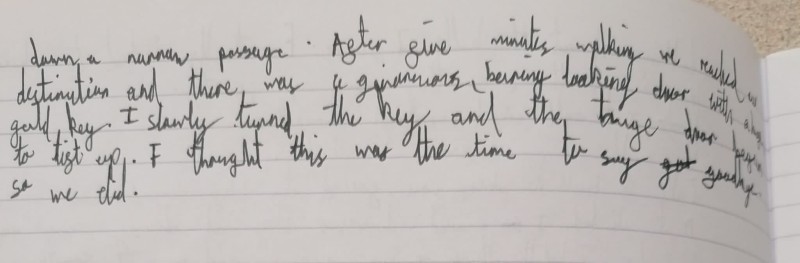 down a narrow passage. After five minutes walking we reached our
destination and there was a ginormous, boring looking door with a huge
gold key. I slowly turned the key and the large door began
to list up. I thought this was the time to say goodbye
so we did.